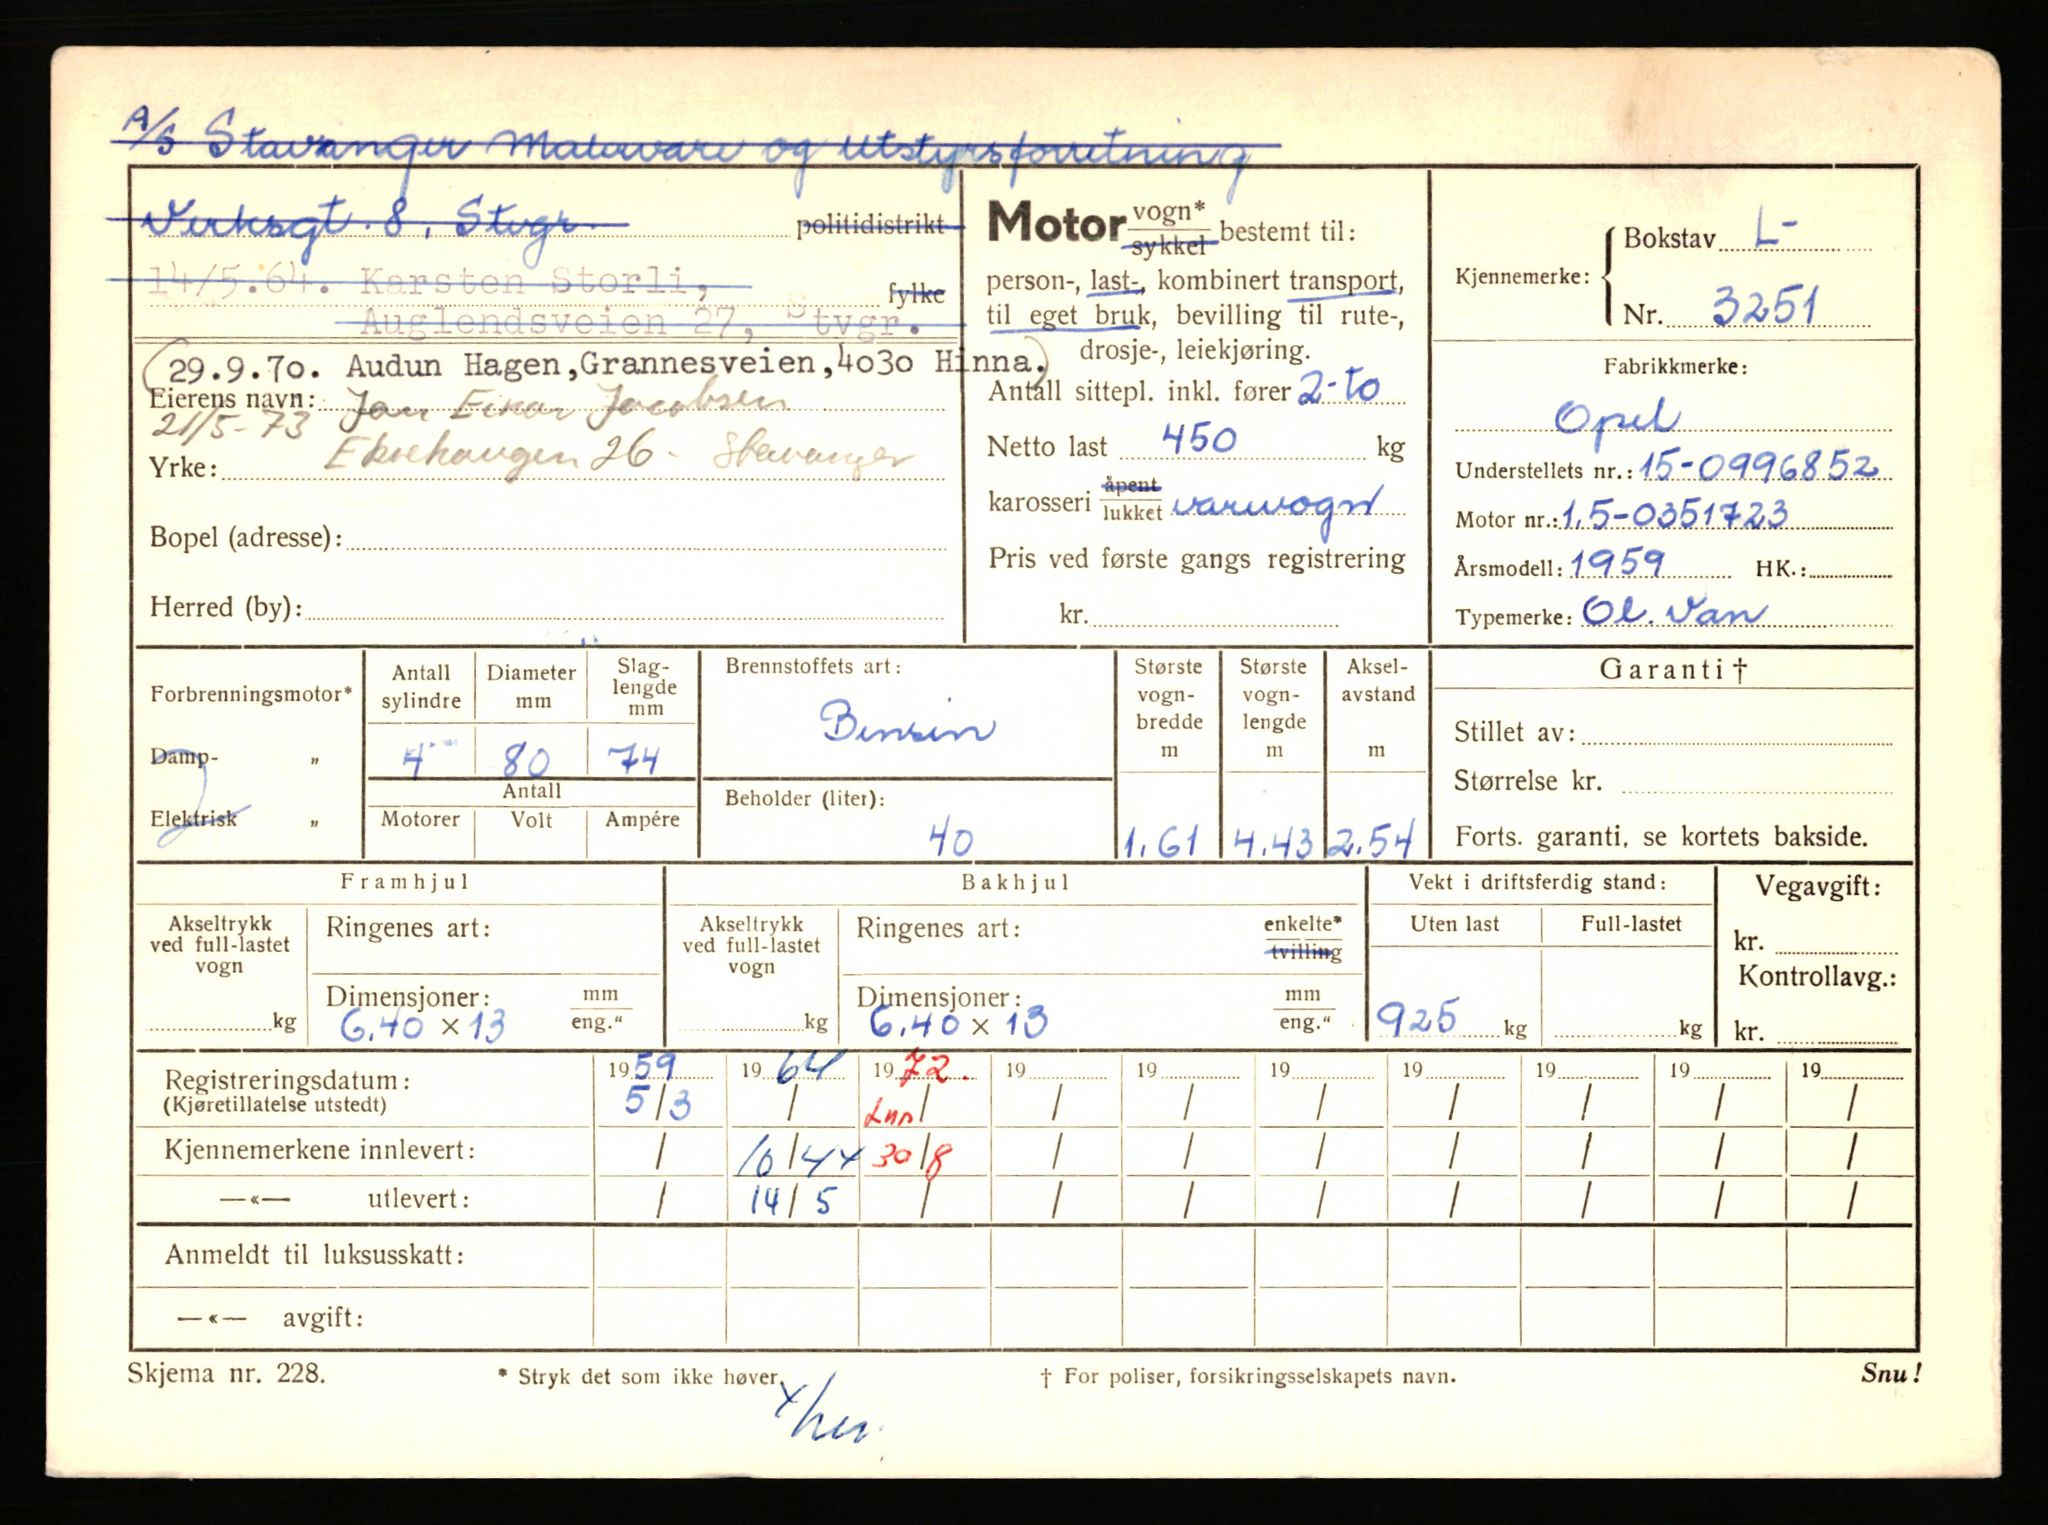 A/S Stavanger Malervare og utstyrsforretning
Verksgt. 8, Stvgr. politidistrikt
14/5.64. Karsten Storli, fylke
Auglendsveien 27, Stvgr.
(29.9.70. Audun Hagen, Grannesveien, 4030 Hinna.)
Eierens navn: Jan Einar Jacobsen
21/5-73
Yrke: 26 - Stavanger
Bopel (adresse):
Herred (by):
Motor vogn* sykkel bestemt til:
person-, last-, kombinert transport,
til eget bruk, bevilling til rute-,
drosje-, leiekjøring.
Antall sittepl. inkl. fører 2-to
Netto last 450 kg
karosseri åpent lukket varevogn
Pris ved første gangs registrering
kr.
Kjennemerke: Bokstav L-
Nr. 3251
Fabrikkmerke:
Opel
Understellets nr.: 15-0996852
Motor nr.: 1.5-0351723
Årsmodell: 1959 HK.:
Typemerke: Ol. Van
Forbrenningsmotor*
Damp- „
Elektrisk „
Antall sylindre Diameter mm Slag-lengde mm
4 80 74
Antall
Motorer Volt Ampére
Brennstoffets art:
Bensin
Beholder (liter):
40
Største vogn-bredde m
1.61
Største vogn-lengde m
4.43
Aksel-avstand m
2.54
Garanti †
Stillet av:
Størrelse kr.
Forts. garanti, se kortets bakside.
Framhjul
Akseltrykk ved full-lastet vogn
kg
Ringenes art:
Dimensjoner: mm eng."
6.40 x 13
Bakhjul
Akseltrykk ved full-lastet vogn
kg
Ringenes art: enkelte* tvilling
Dimensjoner: mm eng."
6.40 x 13
Vekt i driftsferdig stand:
Uten last Full-lastet
925 kg kg
Vegavgift:
kr.
Kontrollavg.:
kr.
Registreringsdatum: 1959 1964 1972. 19 19 19 19 19 19 19
(Kjøretillatelse utstedt) 5/3 / / / / / / / / /
Kjennemerkene innlevert: / 10/4 x 30/8 / / / / / / /
—«— utlevert: / 14/5 / / / / / / / /
Anmeldt til luksusskatt:
—«— avgift:
Skjema nr. 228. * Stryk det som ikke høver. † For poliser, forsikringsselskapets navn. Snu!